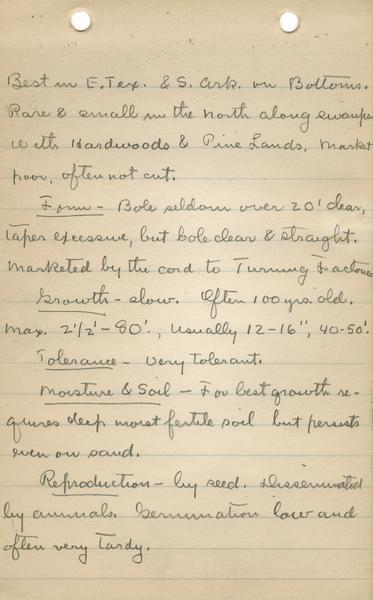 Best in E. Tex. & S. Ark. on Bottoms.
Rare & small in the north along swamps
with Hardwoods & Pine Lands, Market
poor, often not cut.
Form - Bole seldom over 20' clear,
Taper excessive, but bole clear & straight.
Marketed by the cord to Turning Factories
Growth - slow. Often 100 yrs. old.
Max. 2 1/2' - 80'., usually 12-16", 40-50'.
Tolerance - very tolerant.
Moisture & Soil - For best growth re-
quires deep moist fertile soil but persists
even on sand.
Reproduction - by seed. Disseminated
by animals. Germination low and
often very Tardy.